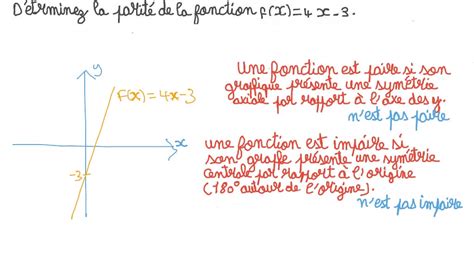 Déterminez la parité de la fonction f(x)=4x-3.
y
f(x)=4x-3
x
-3
une fonction est paire si son
graphique présente une symétrie
axiale par rapport à l'axe des y.
n'est pas paire
une fonction est impaire si
son graphe présente une symétrie
centrale par rapport à l'origine
(180° autour de l'origine).
n'est pas impaire